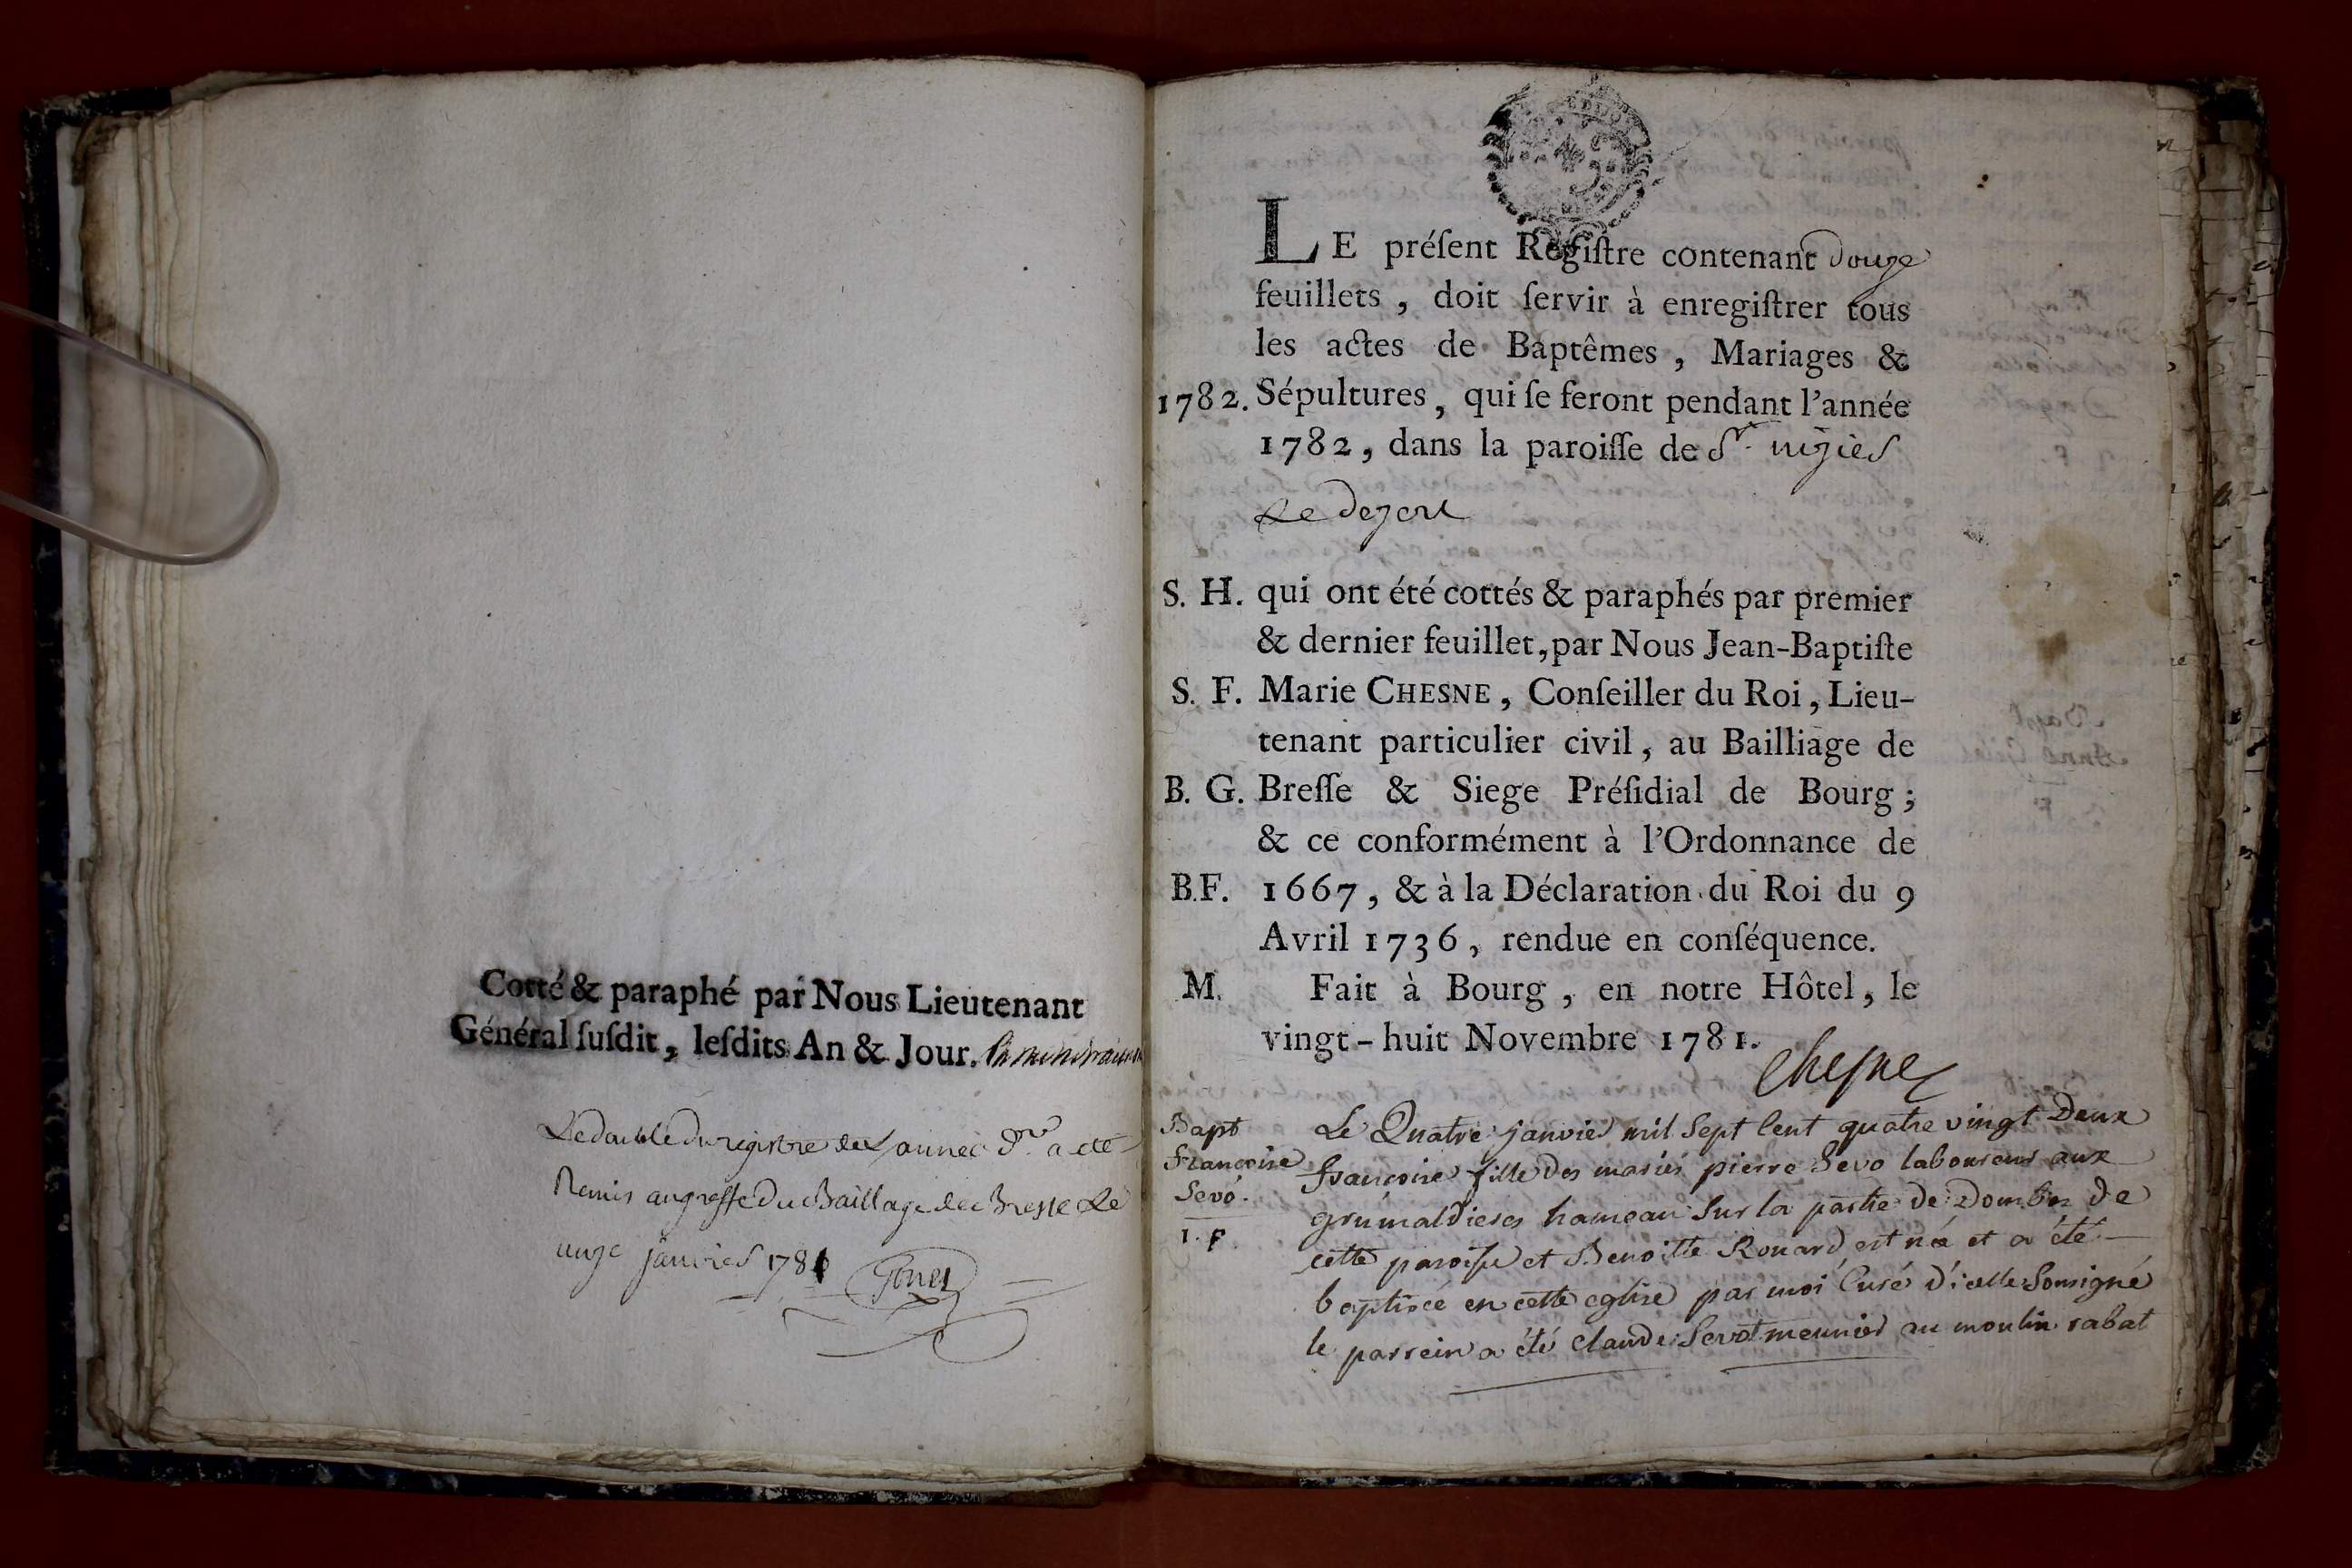 Cotté & paraphé par Nous Lieutenant
Général ſuſdit, leſdits An & Jour.
Le double du registre de L'année dre a eté
Remis au greffe Du Baillage de Bresse Le
unze janvier 178
LE préſent Regiſtre contenant douze
feuillets, doit ſervir à enregiſtrer tous
les actes de Baptêmes, Mariages &
1782. Sépultures, qui ſe feront pendant l'année
1782, dans la paroiſſe de St. nizier
Le dezert
S. H. qui ont été cottés & paraphés par premier
& dernier feuillet, par Nous Jean-Baptiſte
S. F. Marie CHESNE, Conſeiller du Roi, Lieu-
tenant particulier civil, au Bailliage de
B. G. Breſſe & Siege Préſidial de Bourg;
& ce conformément à l'Ordonnance de
B.F. 1667, & à la Déclaration du Roi du 9
Avril 1736, rendue en conſéquence.
M. Fait à Bourg, en notre Hôtel, le
vingt-huit Novembre 1781.
Chesne
Bapt
francoise
Sevo.
1. F.
Le Quatre janvier mil Sept Cent quatre vingt Deux
francoise fille des mariés pierre Sevo laboureur aux
grumaldieres hameau Sur la partie de Dombes de
cette paroisse et Benoitte Rouard est née et a été
baptisée en cette eglise par moi Curé d'icelle Soussigné
le parrein a été Claude Sevot meunier au moulin rabat